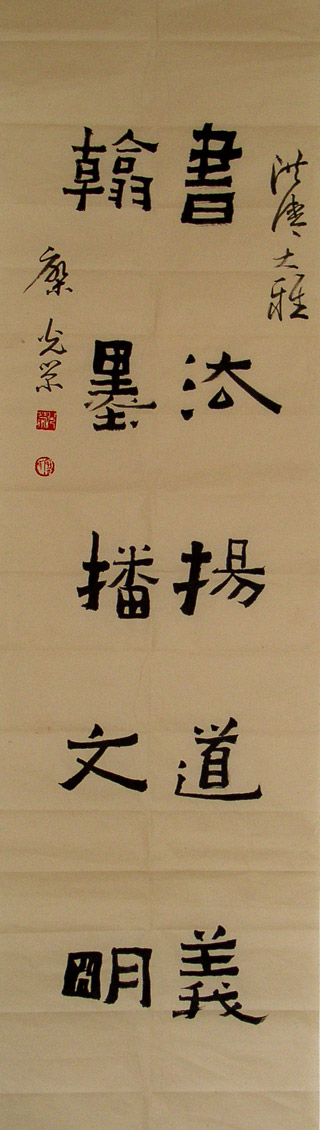 洪 大雅
書法揚道義
翰墨播文明
光荣